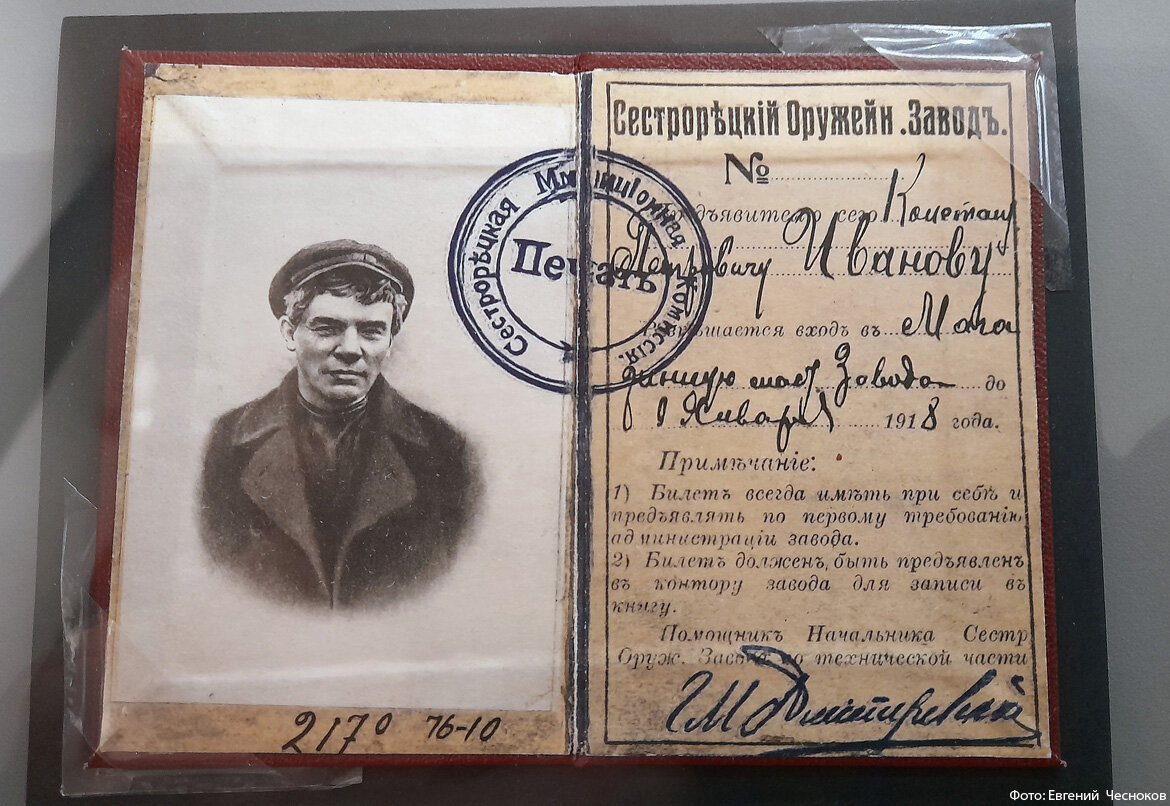 Сестрорѣцкій Оружейн. Заводъ.
№
Предъявителю сего Констан
Петровичу Иванову
Разрѣшается входъ въ Мага
зинную маст. Завода до
1 Января 1918 года.
Примѣчаніе:
1) Билетъ всегда имѣть при себѣ и
предъявлять по первому требованію
администраціи завода.
2) Билетъ долженъ быть предъявленъ
въ контору завода для записи въ
книгу.
Помощникъ Начальника Сестр
Оруж. Завода по технической части
Дмитревскій
Сестрорѣцкая Коммиссія.
Печать
2170 76-10
Фото: Евгений Чесноков